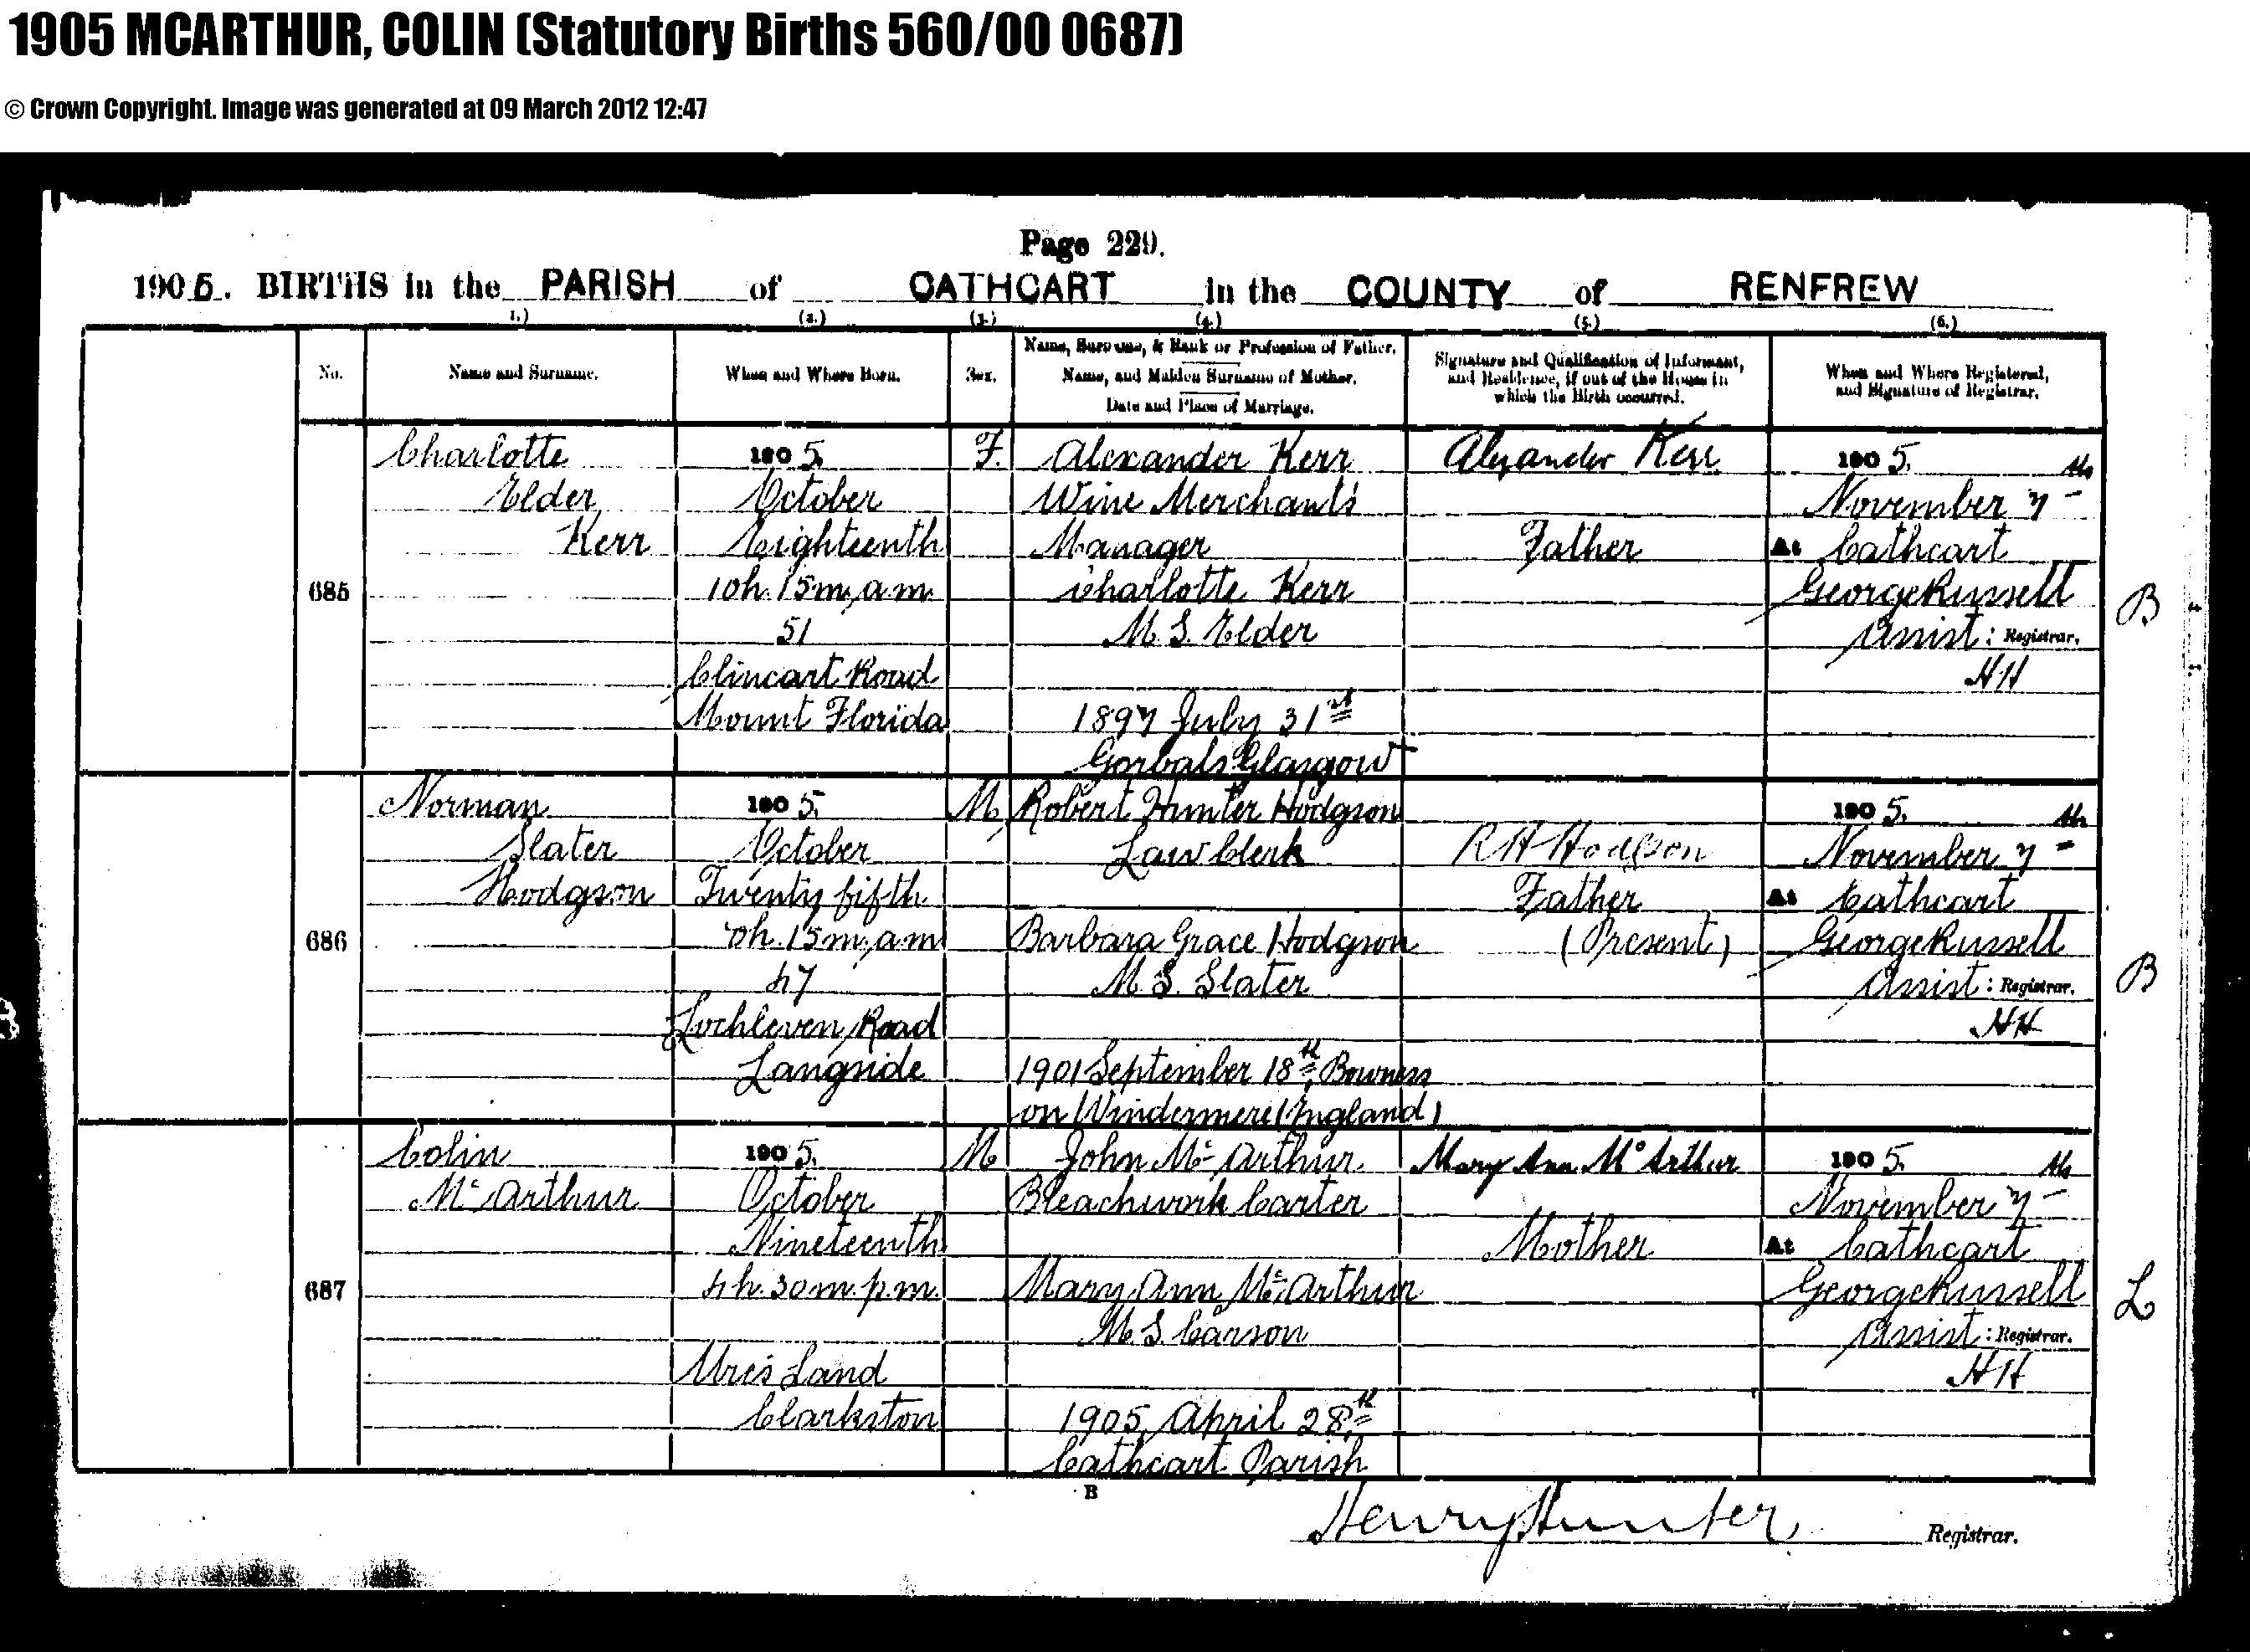 1905 MCARTHUR, COLIN (Statutory Births 560/00 0687)
© Crown Copyright. Image was generated at 09 March 2012 12:47
Page 229.
1905. BIRTHS in the PARISH of CATHCART in the COUNTY of RENFREW
(1.) (2.) (3.) (4.) (5.) (6.)
No.
Name and Surname.
When and Where Born.
Sex.
Name, Surname, & Rank or Profession of Father.
Name, and Maiden Surname of Mother.
Date and Place of Marriage.
Signature and Qualification of Informant,
and Residence, if out of the House in
which the Birth occurred.
When and Where Registered,
and Signature of Registrar.
685
Charlotte
Elder
Kerr
1905.
October
Eighteenth
10h. 15m, a.m.
51
Clincart Road
Mount Florida
F.
Alexander Kerr
Wine Merchant's
Manager
Charlotte Kerr
M. S. Elder
1897 July 31st
Gorbals Glasgow
Alexander Kerr
Father
1905.
November 7th
At Cathcart
George Russell
Assist: Registrar.
HH
B
686
Norman
Slater
Hodgson
1905.
October
Twenty fifth
0h. 15m, am
47
Lochleven Road
Langside
M
Robert Hunter Hodgson
Law Clerk
Barbara Grace Hodgson
M. S. Slater
1901 September 18th, Bowness
on Windermere (England)
R H Hodgson
Father
(Present)
1905.
November 7th
At Cathcart
George Russell
Assist: Registrar.
HH
B
687
Colin
McArthur
1905.
October
Nineteenth
4h. 30m. p.m.
Land
Clarkston
M
John McArthur
Bleachwork Carter
Mary Ann McArthur
M. S. Carson
1905, April 28th
Cathcart Parish
Mary Ann McArthur
Mother
1905.
November 7th
At Cathcart
George Russell
Assist: Registrar.
HH
L
B
Henry Hunter Registrar.